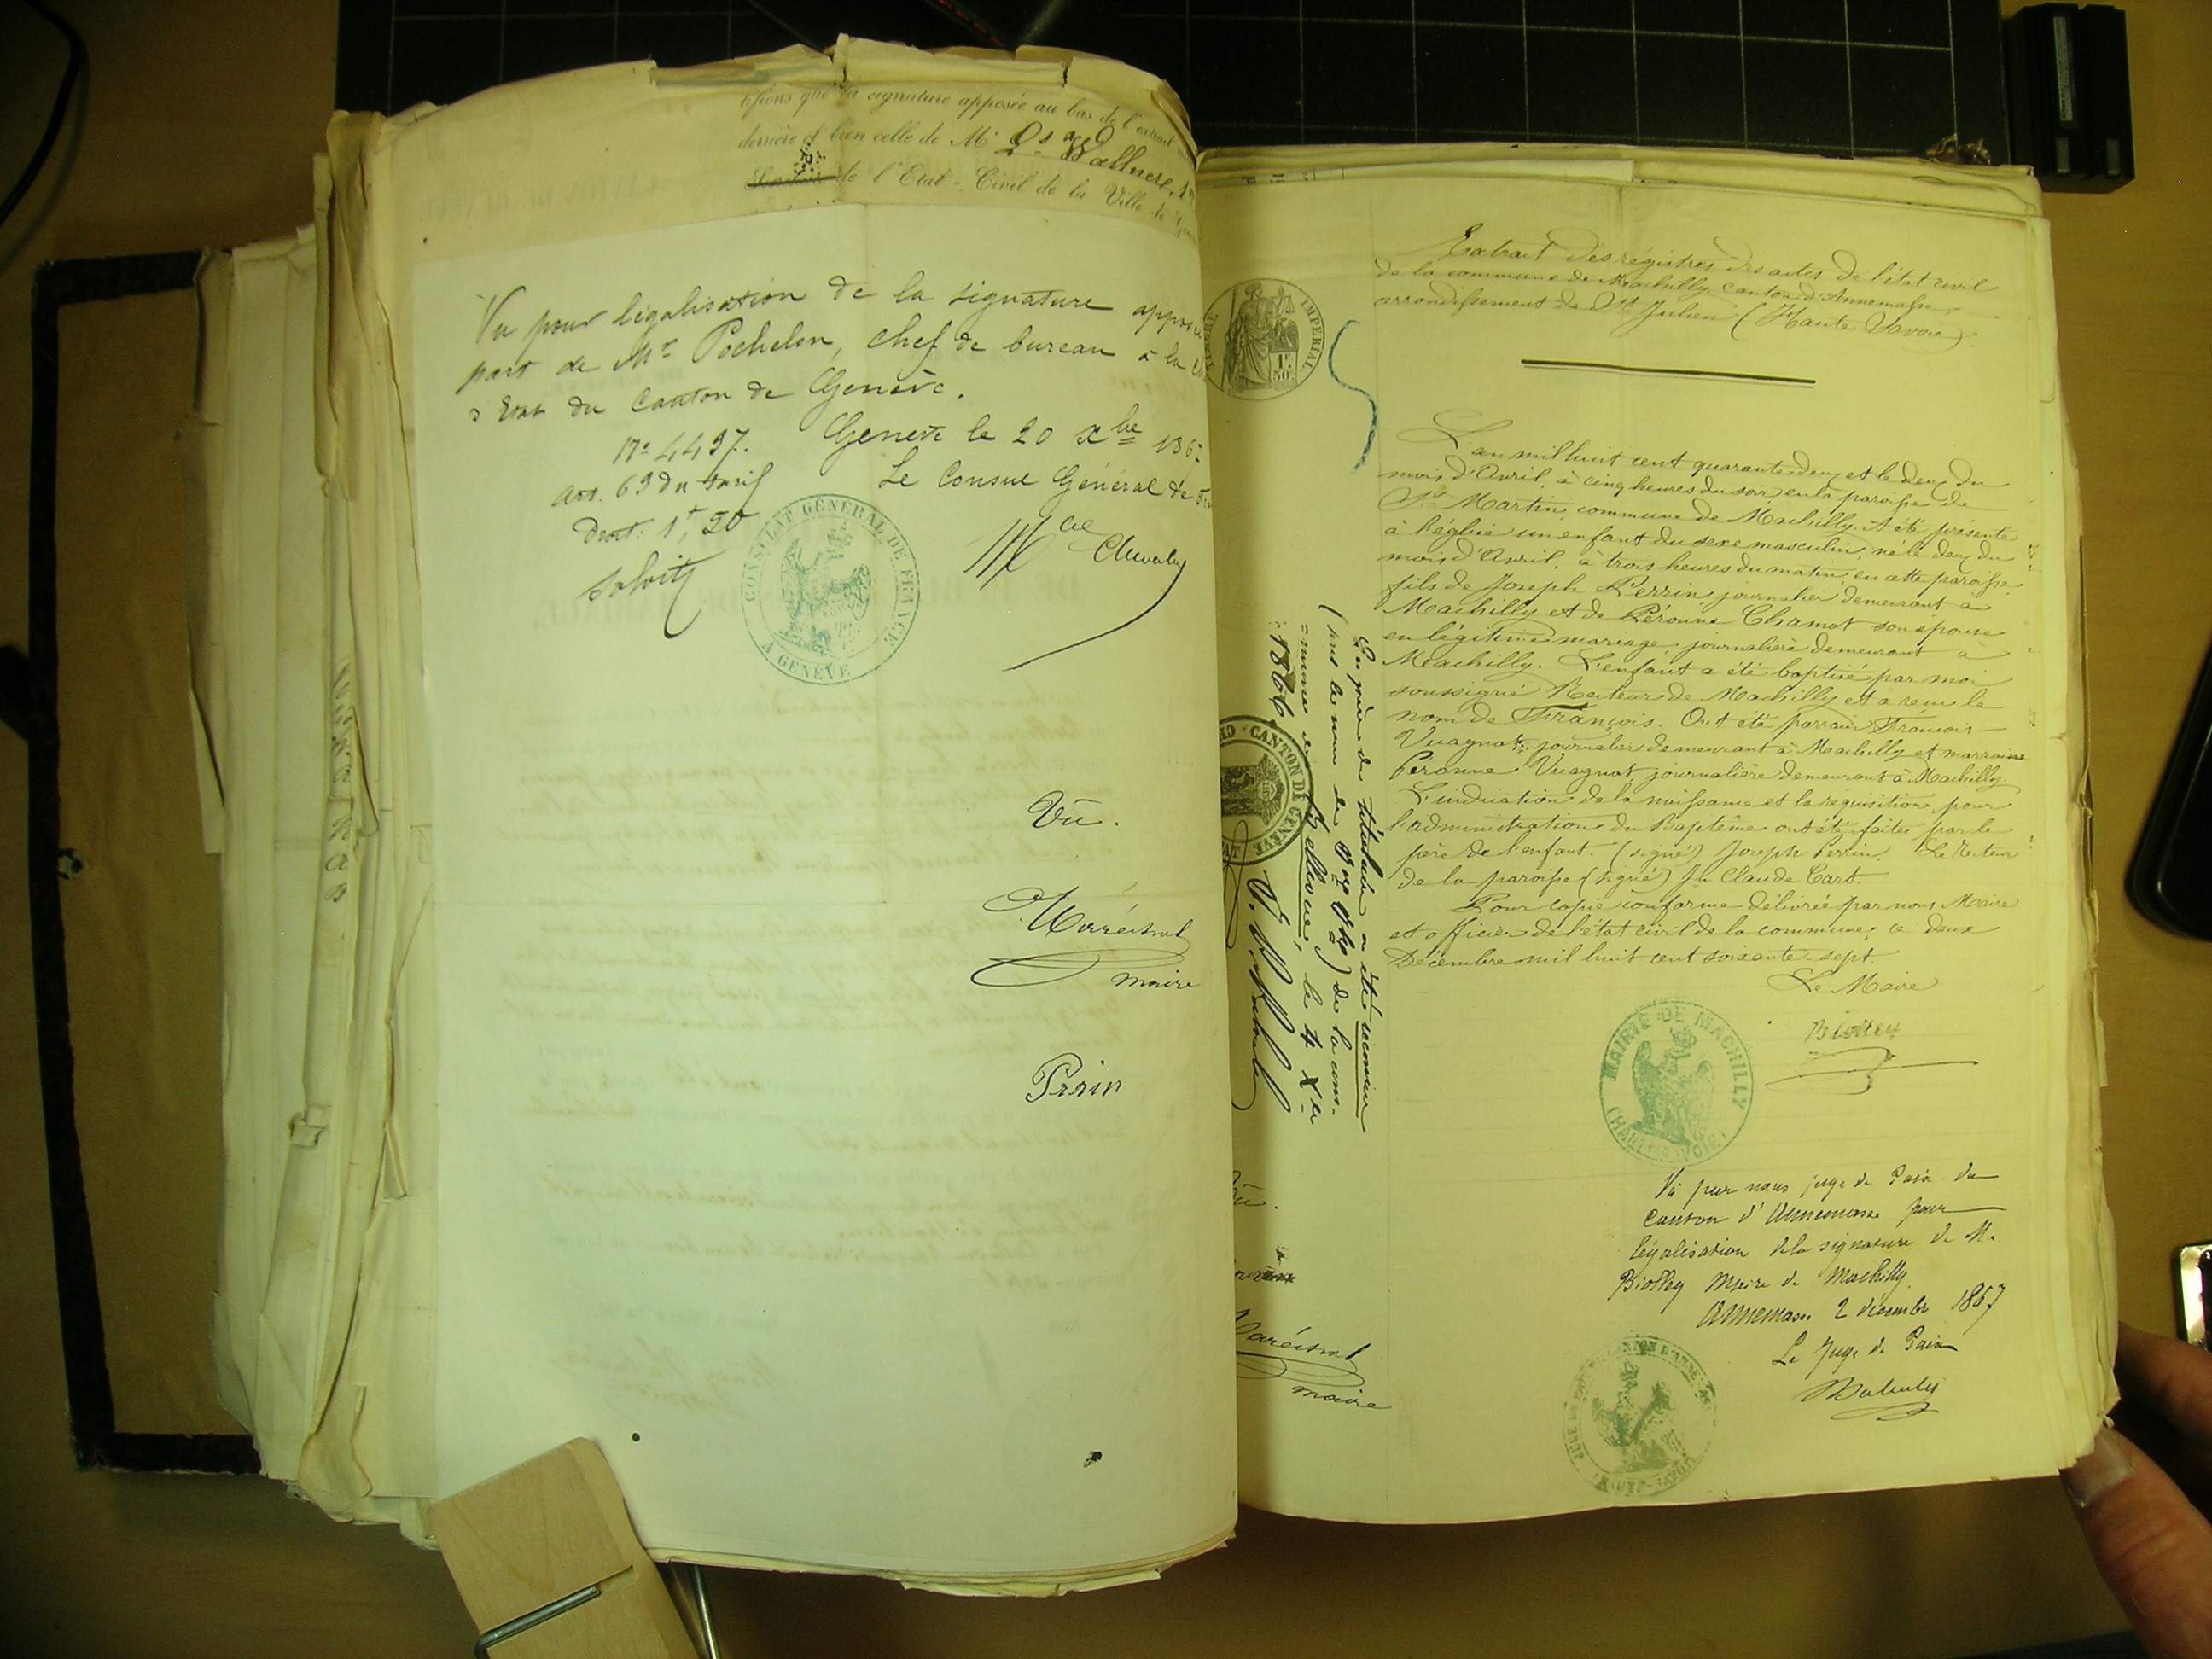 tifions que la signature apposée au bas de l'extrait
derrière est bien celle de Mr
de l'Etat-Civil de la Ville de
Vu pour légalisation de la signature apposée
part de Mr Pochelon, chef de bureau à la
d'Etat du Canton de Genève.
No 4497. Genève le 20 Xbe 186
art. 69 du tarif Le Consul Général de
Droit: 1f, 20
CONSULAT GÉNÉRAL DE FRANCE
A GENÈVE
Vu.
Maréchal
maire
Perrin
Extrait des régistres des actes de l'état civil
de la commune de Machilly, canton d'Annemasse,
arrondissement de St Julien (Haute Savoie).
TIMBRE IMPERIAL
1F. 50C.
L'an mil huit cent quarante deux et le deux du
mois d'Avril, à cinq heures du soir, en la paroisse de
St Martin, commune de Machilly. A été présenté
à l'église un enfant du sexe masculin, né le deux du
mois d'Avril, à trois heures du matin en cette paroisse
fils de Joseph Perrin journalier demeurant à
Machilly et de Péronne Chamot son épouse
en légitime mariage, journalière demeurant à
Machilly. L'enfant a été baptisé par moi
soussigné Recteur de Machilly et a reçu le
nom de François. Ont été parrain François
Vuagnat journalier demeurant à Machilly et marraine
Péronne Vuagnat journalière demeurant à Machilly.
L'indication de la naissance et la réquisition pour
l'administration du Baptême ont été faites par le
père de l'enfant. (signé) Joseph Perrin. Le Recteur
de la paroisse (signé) Jn Claude Cart.
Pour copie conforme délivrée par nous Maire
et officier de l'état civil de la commune, ce deux
Décembre mil huit cent soixante-sept.
Le Maire
Biolley
MAIRIE DE MACHILLY
(HAUTE SAVOIE)
Vu par nous juge de Paix du
canton d'Annemasse pour
légalisation de la signature de M.
Biolley Maire de Machilly
Annemasse 2 décembre 1867
Le Juge de Paix
Le père du titulaire a été
(sous le nom de ) de la com-
=mune de Bellerive, le 4 Xbr
1866.
CANTON DE GENÈVE
Vu.
Maréchal
maire